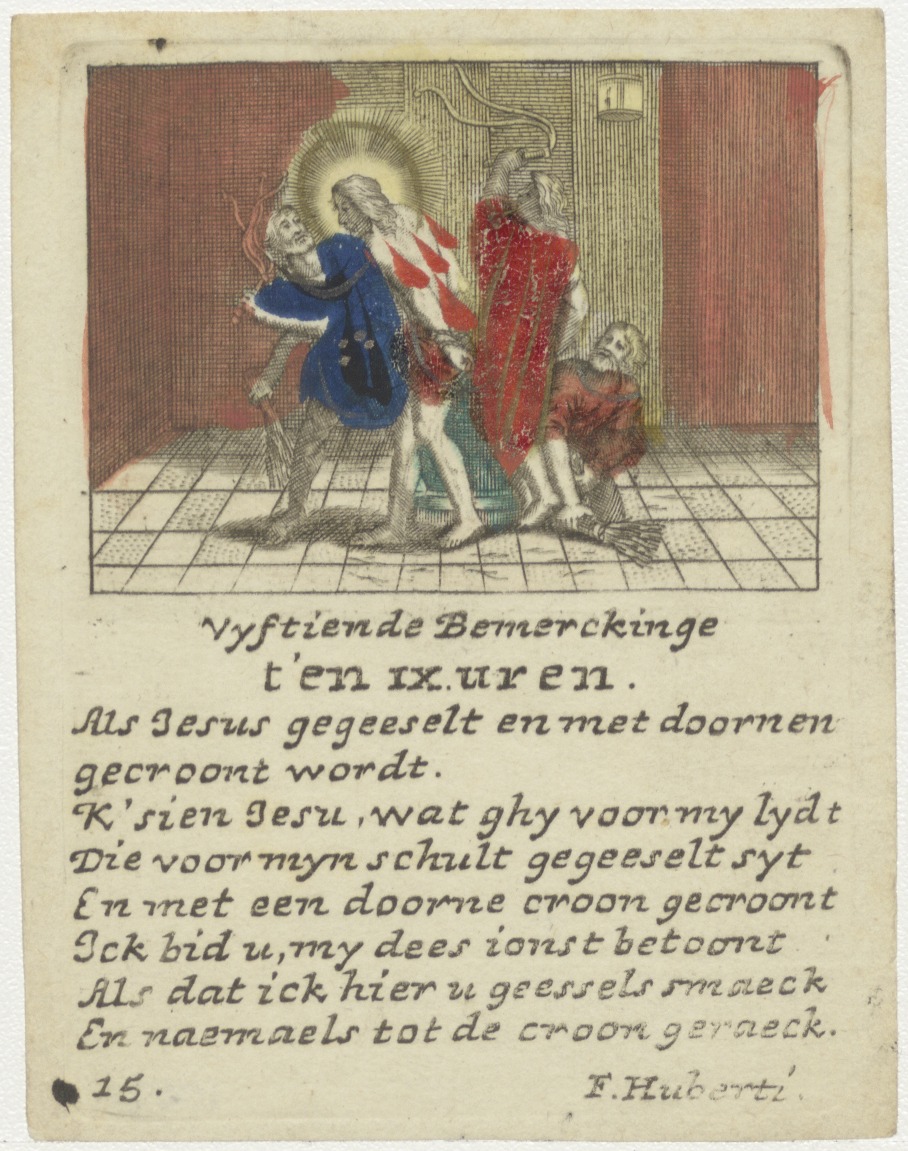 Vyftiende Bemerckinge
t'en IX. uren.
Als Jesus gegeeselt en met doornen
gecroont wordt.
K'sien Jesu, wat ghy voor my lydt
Die voor myn schult gegeeselt syt
En met een doorne croon gecroont
Ick bid u, my dees ionst betoont
Als dat ick hier u geessels smaeck
En naemaels tot de croon geraeck.
15. F. Huberti.